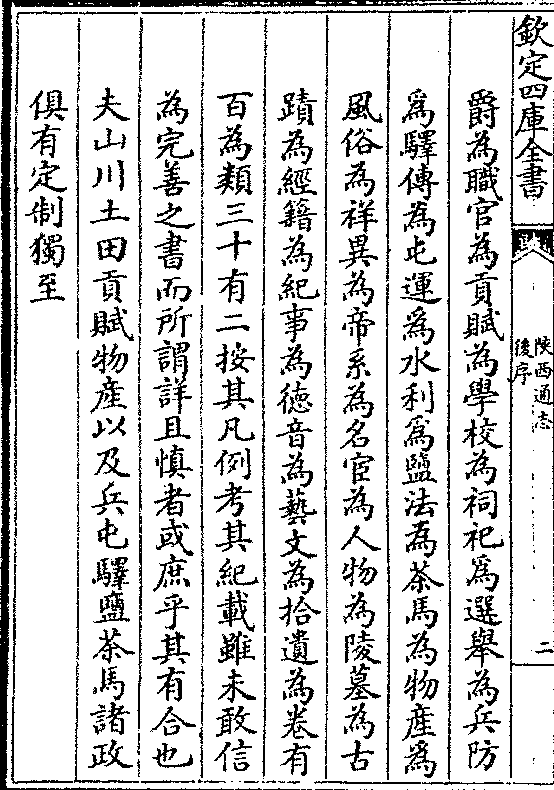 欽定四庫全書
陝西通志
後序
二
爵為職官為貢賦為學校為祠祀為選舉為兵防
為驛傳為屯運為水利為鹽法為茶馬為物產為
風俗為祥異為帝系為名宦為人物為陵墓為古
蹟為經籍為紀事為徳音為藝文為拾遺為卷有
百為類三十有二按其凡例考其紀載雖未敢信
為完善之書而所謂詳且慎者或庶乎其有合也
夫山川土田貢賦物產以及兵屯驛鹽茶馬諸政
俱有定制獨至